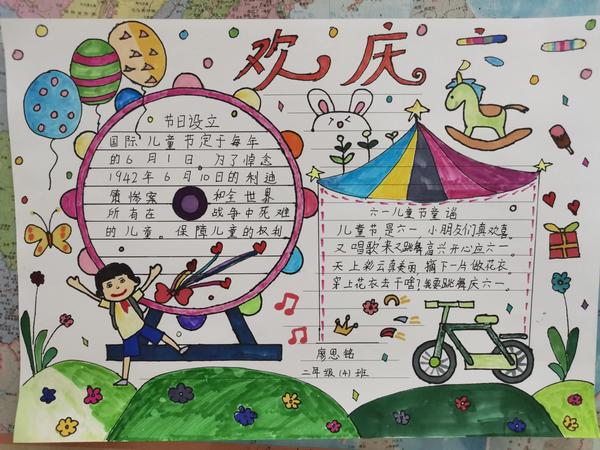 欢庆
节日设立
国际儿童节定于每年
的6月1日。为了悼念
1942年6月10日的利迪
策惨案 和全世界
所有在 战争中死难
的儿童。保障儿童的权利
六一儿童节童谣
儿童节是六一 小朋友们真欢喜。
又唱歌来又跳舞高兴开心应六一。
天上彩云真美丽 摘下一片做花衣。
穿上花衣去干啥了我要跳舞庆六一。
廖思铭
二年级(4)班